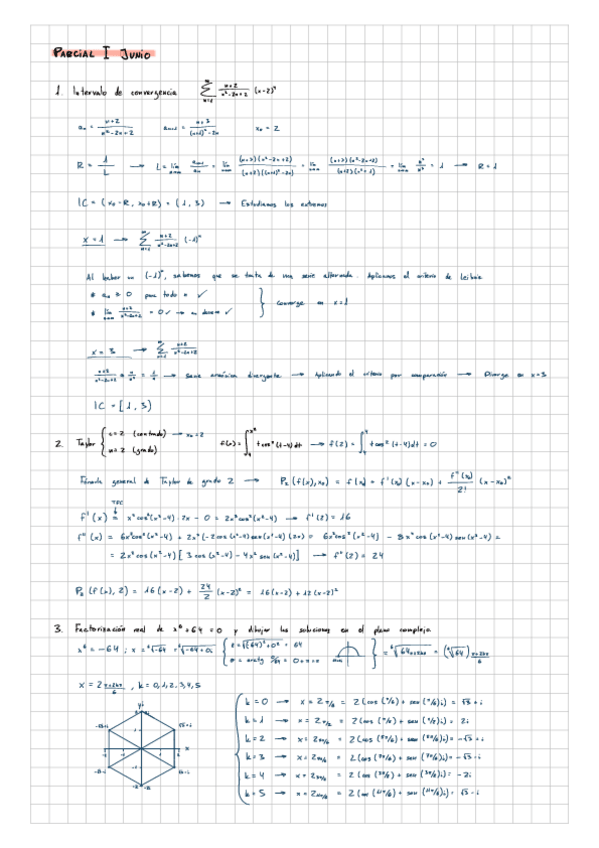 PARCIAL I JUNIO
1. Intervalo de convergencia ∑ n=1 ∞ (n+2)/(n²-2n+2) (x-2)ⁿ
aₙ = (n+2)/(n²-2n+2) aₙ₊₁ = (n+3)/((n+1)²-2n) x₀ = 2
R = 1/L → L = lím aₙ₊₁/aₙ = lím ((n+3)(n²-2n+2))/((n+2)((n+1)²-2n)) = lím ((n+3)(n²-2n+2))/((n+2)(n²+1)) = lím n³/n³ = 1 → R = 1
IC = (x₀-R, x₀+R) = (1, 3) → Estudiamos los extremos
x = 1 → ∑ n=1 ∞ (n+2)/(n²-2n+2) (-1)ⁿ
Al haber un (-1)ⁿ, sabemos que se trata de una serie alternada. Aplicamos el criterio de Leibniz
* aₙ ≥ 0 para todo n ✓
* lím (n+2)/(n²-2n+2) = 0 ✓ → aₙ decrece ✓ } Converge en x=1
x = 3 → ∑ n=1 ∞ (n+2)/(n²-2n+2)
(n+2)/(n²-2n+2) ≈ n/n² = 1/n → Serie armónica divergente → Aplicando el criterio por comparación → Diverge en x=3
IC = [1, 3)
2. Taylor { a=2 (centrado) → x₀=2 n=2 (grado) f(x) = ∫₄^x² t cos²(t-4) dt → f(2) = ∫₄^4 t cos²(t-4) dt = 0
Fórmula general de Taylor de grado 2 → P₂(f(x), x₀) = f(x₀) + f'(x₀)(x-x₀) + f''(x₀)/2! (x-x₀)²
TFC
f'(x) = x² cos²(x²-4) · 2x - 0 = 2x³cos²(x²-4) → f'(2) = 16
f''(x) = 6x²cos²(x²-4) + 2x³(-2cos(x²-4)sen(x²-4)(2x)) = 6x²cos²(x²-4) - 8x⁴cos(x²-4)sen(x²-4) =
= 2x²cos(x²-4)[3cos(x²-4) - 4x²sen(x²-4)] → f''(2) = 24
P₂(f(x), 2) = 16(x-2) + 24/2 (x-2)² = 16(x-2) + 12(x-2)²
3. Factorización real de x⁶+64=0 y dibujar las soluciones en el plano complejo.
x⁶ = -64 ; x = ⁶√-64 = ⁶√-64+0i { r = √(64)²+0² = 64
x = 2 (π+2kπ)/6 , k = 0,1,2,3,4,5
k=0 → x = 2 π/6 = 2(cos(π/6) + sen(π/6)i) = √3+i
k=1 → x = 2 π/2 = 2(cos(π/2) + sen(π/2)i) = 2i
k=2 → x = 2 5π/6 = 2(cos(5π/6) + sen(5π/6)i) = -√3+i
k=3 → x = 2 7π/6 = 2(cos(7π/6) + sen(7π/6)i) = -√3-i
k=4 → x = 2 3π/2 = 2(cos(3π/2) + sen(3π/2)i) = -2i
k=5 → x = 2 11π/6 = 2(cos(11π/6) + sen(11π/6)i) = √3-i